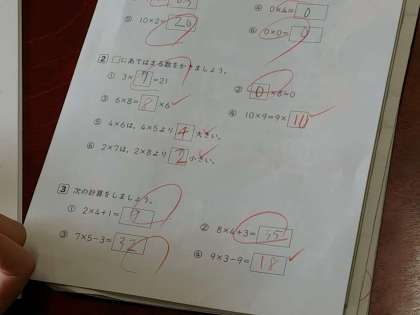 ⑤ 10×2= 20
④ 0×4= 0
⑥ 0×0= 0
2 □にあてはまる数をかきましょう。
① 3× 7 =21
② 0 ×8=0
③ 6×8= 8 ×6
④ 10×9=9× 10
⑤ 4×6は、4×5より 4 大きい。
⑥ 2×7は、2×8より 2 小さい。
3 次の計算をしましょう。
① 2×4+1= 9
② 8×4+3= 35
③ 7×5-3= 32
④ 9×3-9= 18